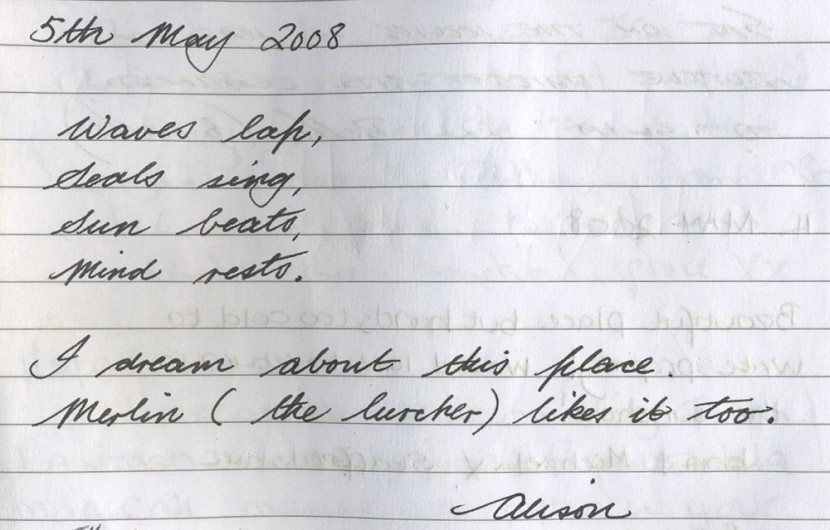 5th May 2008
Waves lap,
Seals sing,
Sun beats,
Mind rests.
I dream about this place.
Merlin ( the lurcher) likes it too.
Alison